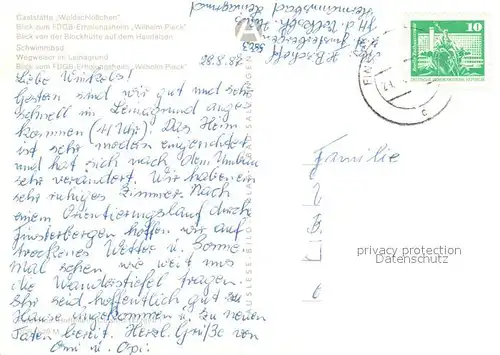 Gaststätte „Waldschlößchen"
Blick zum FDGB-Erholungsheim „Wilhelm Pieck"
Blick von der Blockhütte auf dem Handelsen
Schwimmbad
Wegweiser im Leinagrund
Blick zum FDGB-Erholungsheim „Wilhelm Pieck"
28.9.82
Liebe Winkels!
Gestern sind wir gut und sehr
schnell im Leinagrund ange
kommen (11 Uhr). Das Heim
ist sehr modern eingerichtet
und hat sich nach dem Umbau
sehr verändert. Wir haben ein
sehr ruhiges Zimmer. Nach
einem Orientierungslauf durch
Finsterbergen hoffen wir auf
trockenes Wetter u. Sonne
Mal sehen wie weit uns
die Wanderstiefel tragen.
Ihr seid hoffentlich gut zu
Hause angekommen u. zu neuen
Taten bereit. Herzl. Grüße von
Omi u. Opi.
H. Bischoff
5803 Finsterbergen
FIN
10
DEUTSCHE DEMOKRATISCHE REPUBLIK
AUSLESE-BILD-VERLAG BAD SALZUNGEN
Familie
privacy protection
Datenschutz